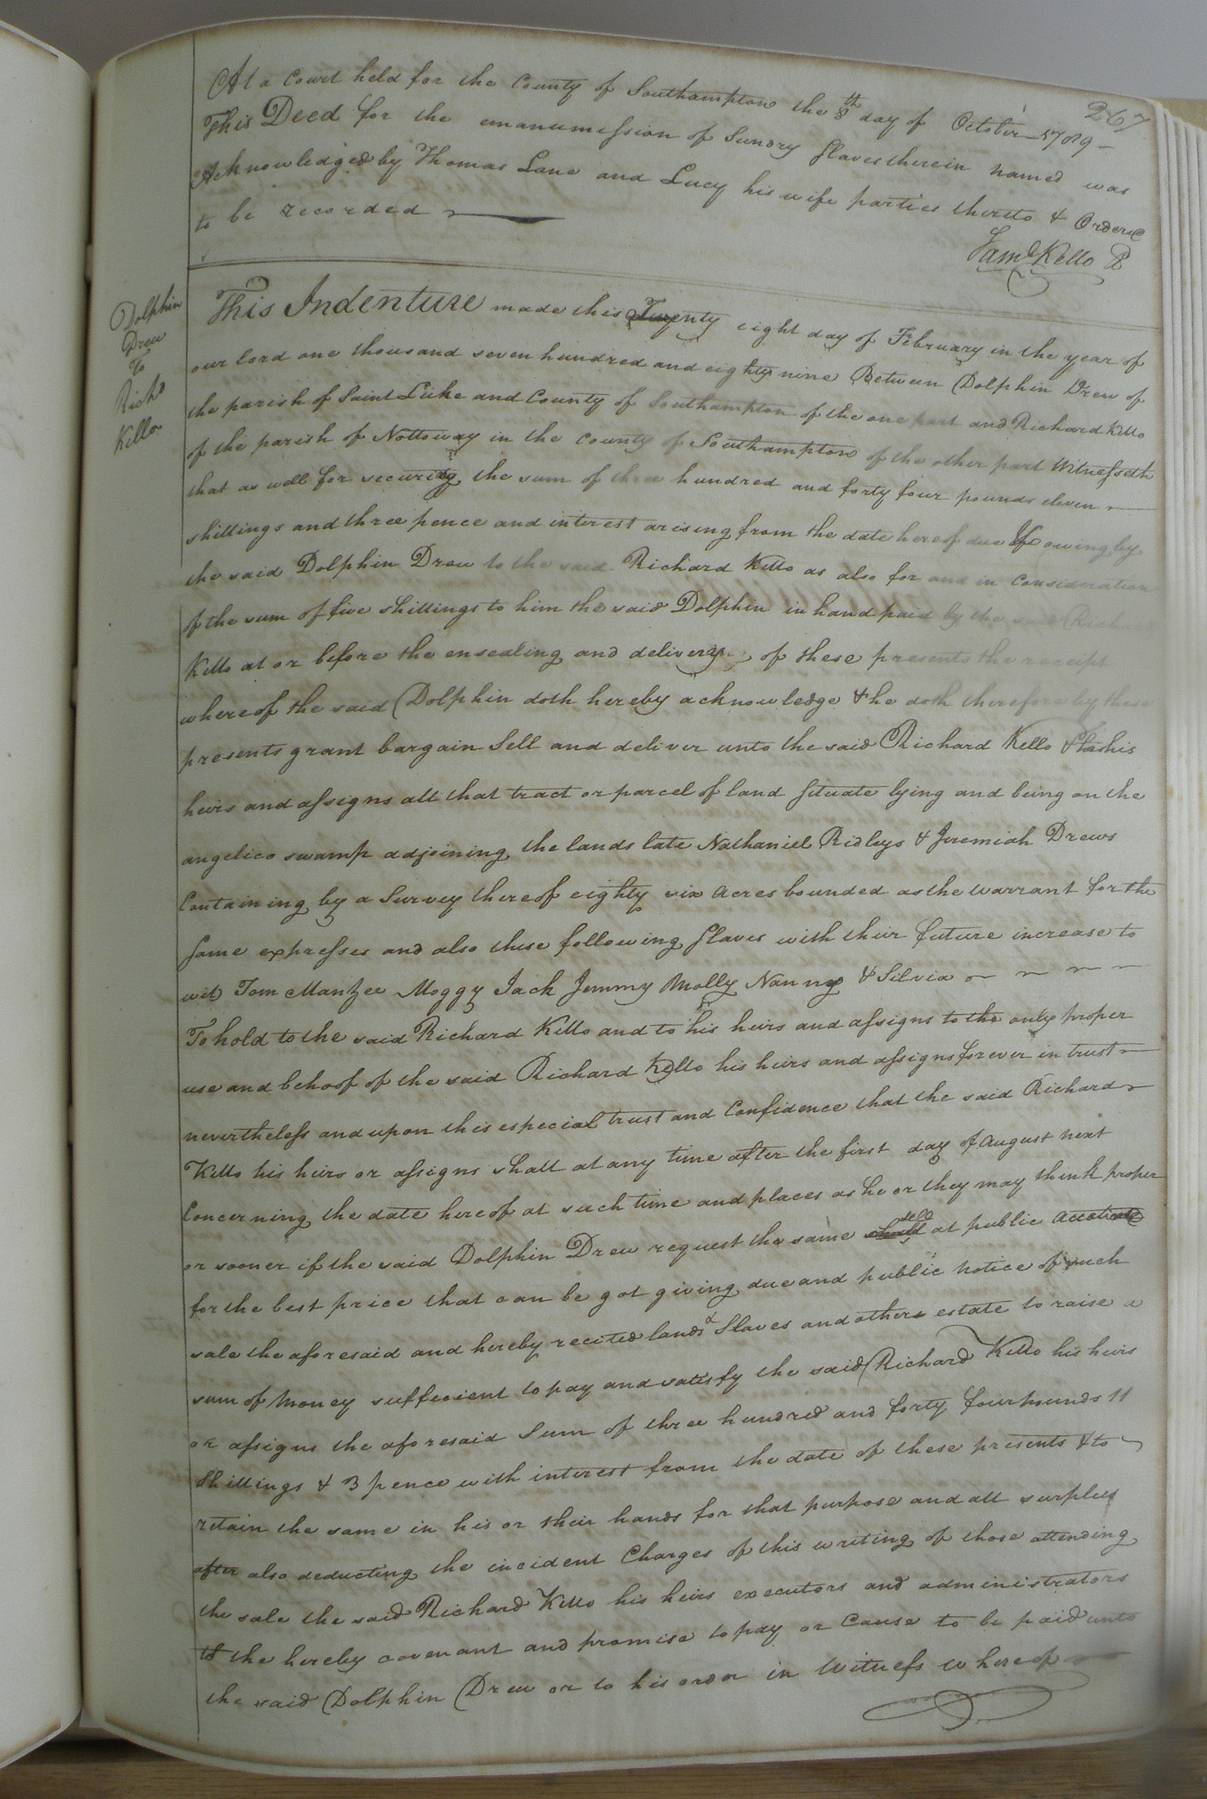 267
At a Court held for the County of Southampton the 8th day of October 1789 –
This Deed for the emanumission of Sundry Slaves therein named was
Acknowledged by Thomas Lane and Lucy his wife parties thereto & Ordered
to be recorded
Saml Kello
Dolphin
Drew
To
Richd
Kello
This Indenture made this Twenty eight day of February in the year of
our lord one thousand seven hundred and eighty nine Between Dolphin Drew of
the parish of Saint Luke and County of Southampton of the one part and Richard Kello
of the parish of Nottoway in the County of Southampton of the other part Witnesseth
that as well for securing the sum of three hundred and forty four pounds eleven
shillings and three pence and interest arising from the date hereof due & owing by
the said Dolphin Drew to the said Richard Kello as also for and in Consideration
of the sum of five shillings to him the said Dolphin in hand paid by the said Richd
Kello at or before the ensealing and delivery of these presents the receipt
whereof the said Dolphin doth hereby acknowledge & he doth therefore by these
presents grant bargain Sell and deliver unto the said Richard Kello & to his
heirs and assigns all that tract or parcel of land Situate lying and being on the
angelico swamp adjoining the lands late Nathaniel Ridleys & Jeremiah Drews
Containing by a Survey thereof eighty six acres bounded as the warrant for the
Same expresses and also these following Slaves with their future increase to
wit Tom Mantzee Moggy Jack Jemmy Molly Nanny & Silvia
To hold to the said Richard Kello and to his heirs and assigns to the only proper
use and behoof of the said Richard Kello his heirs and assigns forever in trust
nevertheless and upon this especial trust and Confidence that the said Richard
Kello his heirs or assigns shall at any time after the first day of August next
Concerning the date hereof at such time and places as he or they may think proper
or sooner if the said Dolphin Drew request the same sell at public
for the best price that can be got giving due and public notice of such
sale the aforesaid and hereby recited lands & Slaves and other estate to raise a
sum of money suffecient to pay and satisfy the said Richard Kello his heirs
or assigns the aforesaid Sum of three hundred and forty four pounds 11
Shillings & 3 pence with interest from the date of these presents & to
retain the same in his or their hands for that purpose and all surplus
after also deducting the incident Charges of this writing of those attending
the sale the said Richard Kello his heirs executors and administrators
the hereby covenant and promise to pay or Cause to be paid unto
the said Dolphin Drew or to his order in Witness whereof